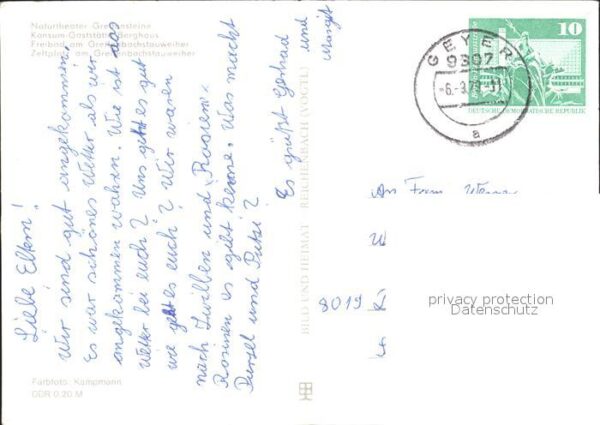 Naturtheater Greifensteine
Konsum-Gaststätte Berghaus
Freibad am Greifenbachstauweiher
Zeltplatz am Greifenbachstauweiher
Liebe Eltern!
Wir sind gut angekommen.
Es war schönes Wetter als wir
angekommen wahren. Wie ist das
Wetter bei euch? Uns geht es gut
wie geht es euch? Wir waren
nach Zwilben und
Rosinen es gibt keine. Was macht
Pursel und Putzi?
Es grüßt Gerhad
und
Margit
Farbfoto: Kampmann
DDR 0,20 M
BILD UND HEIMAT REICHENBACH (VOGTL)
GEYER
9307
a
10
DEUTSCHE DEMOKRATISCHE REPUBLIK
An Fam. Werner
W
8019
privacy protection
Datenschutz